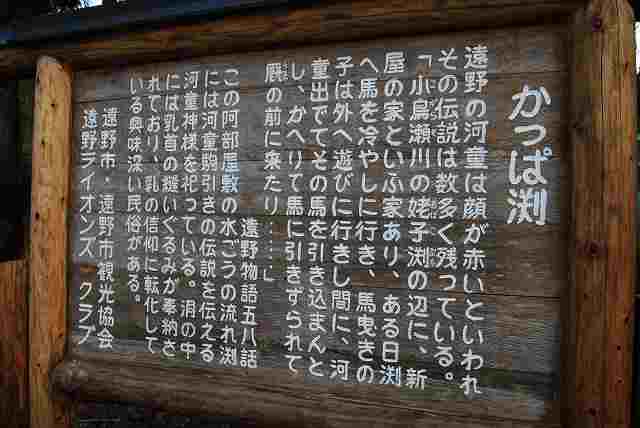 かっぱ淵
遠野の河童は顔が赤いといわれ
その伝説は数多く残っている。
「小烏瀬川の姥子渕の辺に、新
屋の家といふ家あり、ある日渕
へ馬を冷やしに行き、馬曳きの
子は外へ遊びに行きし間に、河
童出でてその馬を引き込まんと
し、かへりて馬に引きずられて
厩の前に来たり……」
遠野物語五八話
この阿部屋敷の水ごうの流れ渕
には河童駒引きの伝説を伝える
河童神様を祀っている。祠の中
には乳首の縫いぐるみが奉納さ
れており、乳の信仰に転化して
いる興味深い民俗がある。
遠野市・遠野市観光協会
遠野ライオンズ クラブ